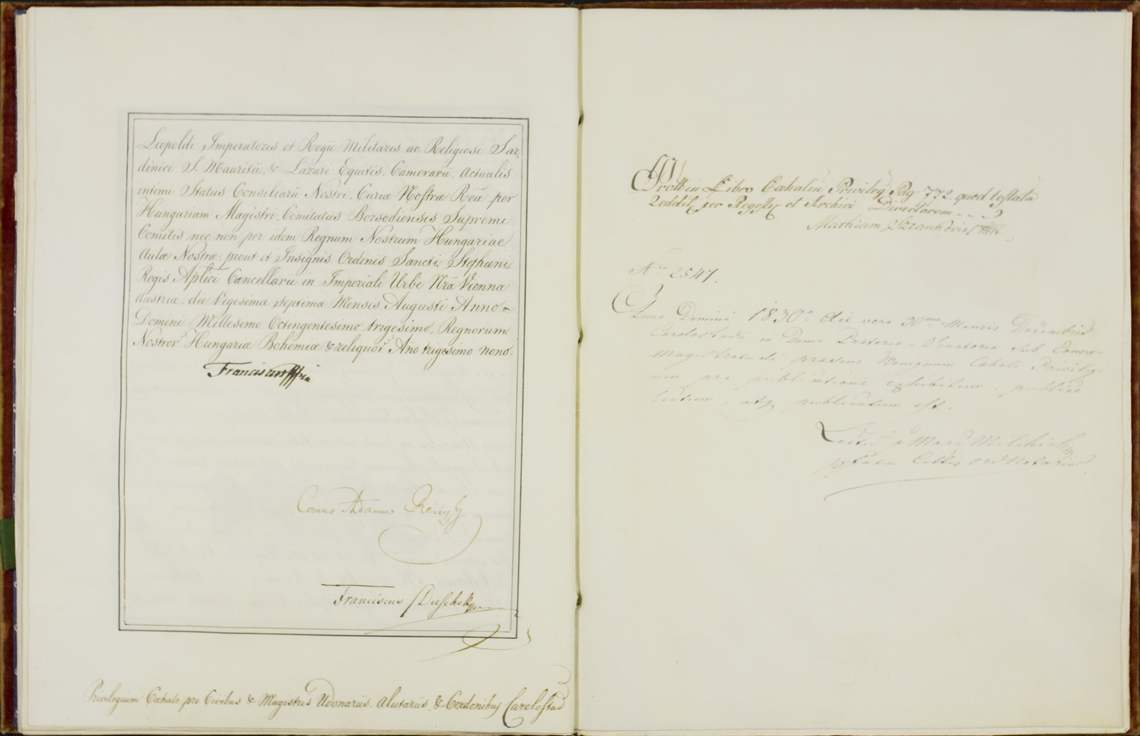 Leopoldi Imperatoris et Regii Militaris ac Religiosi Sar-
dinici S. Mauritii, & Lazari Equitis Camerarii, Actualis
intimi Status Consiliarii Nostri, Curiæ Nostræ Reæ per
Hungariam Magistri, Comitatus Borsodiensis Supremi
Comitis nec non per idem Regnum Nostrum Hungariae
Aulæ Nostræ, prout et Insignis Ordinis Sancti Stephani
Regis Aplici Cancellarii in Imperiali Urbe Nrâ Vienna
Austriæ, die Vigesima septema Mensis Augusti Anno
Domini Millesimo Octingentesimo trigesimo, Regnorum
Nostror Hungariæ Bohemiæ & reliquor Ano trigesimo nono.
Franciscus
Comes Adamus Reviczky
Franciscus
Privilegium Cæhale, pro Civibus & Magistris Udonariis, Alutariis, & Cerdonibus Carolostad
in Libro Cæhaliu Privileg Pag 772. quod testatu
reddit, per Regesty et Archivi Directorem
Mathiam
Nro 2547.
Anno Domini 1830o die vero 30ma Mensis Decembris
Carolostadii in Domo Prætorio, Senatorio Sub
Magistratuali præsens Benignum Cæhale Privilegi-
um pro publicatione exhibitum, publice
lectum, atq publicatum est.